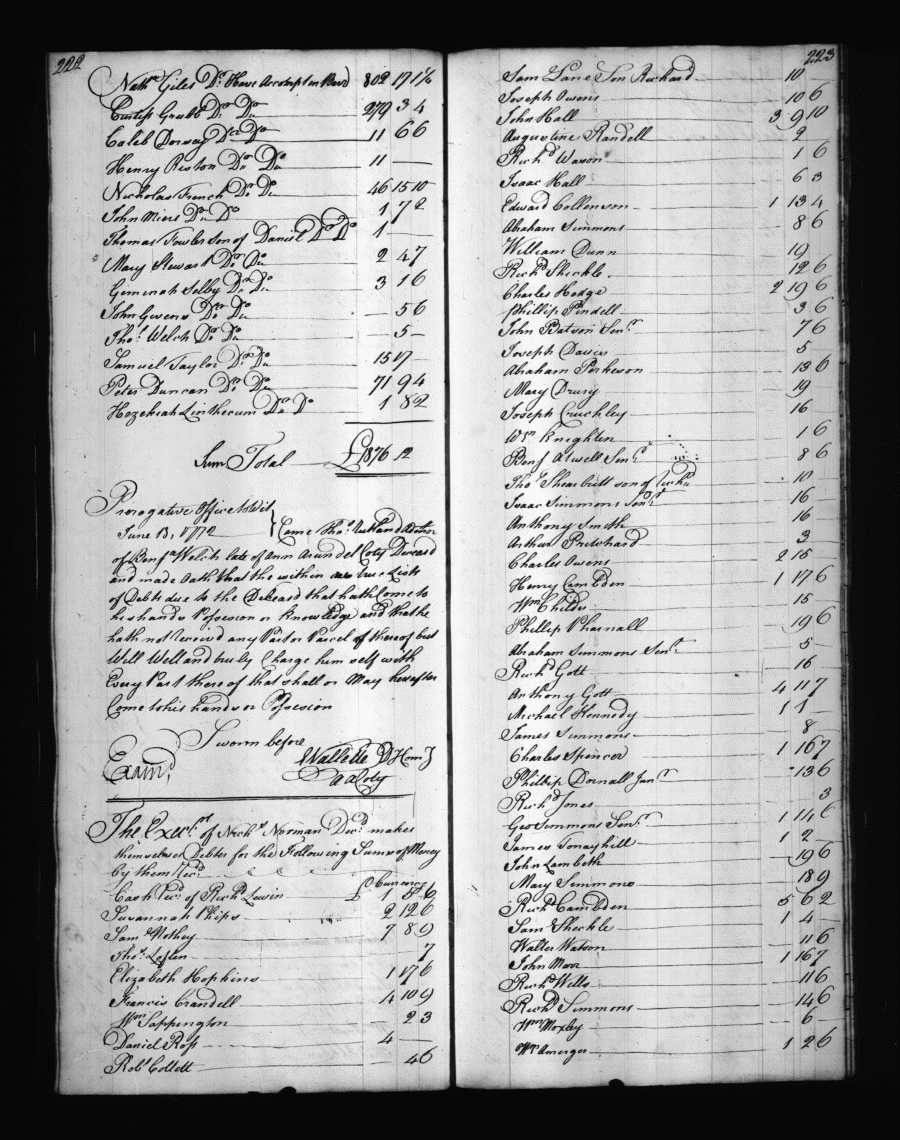 222
Nathn Giles Dr. Have Accompt in Bard 802 17 1½
Curtiss Grubb Do Do 279 3 4
Caleb Dorsay Do Do 11 6 6
Henry Riston Do Do 11 —
Nicholas French Do Do 46 15 10
John Miers Do Do 1 7 2
Thomas Fowler son of Daniel Do Do 1 —
Mary Stewart Do Do 2 4 7
Geminah Selby Do Do 3 1 6
John Gwens Do Do 5 6
Thos. Welch Do Do 5 —
Samuel Taylor Do Do 15 17
Peter Duncan Do Do 71 9 4
Hezekiah Linthecum Do Do 1 8 2
Sum Total £1876 12
Prerogative Office to Wit
June 13, 1772 } Came Thos. Rutland
of Benja Welch late of Ann Arundel Coty Deceasd
and made Oath that the within are true Lists
of Debts due to the Deceasd that hath Come to
his hands Possesion or Knowledge and that he
hath not receivd any Part or Parcel of thereof but
Will Well and truly Charge himself with
Every Part there of that shall or May hereafter
Come to his hands or Possesion
Sworn before
Examd.
AA Coty
The Execrs. of Nichs Norman Decd. makes
themselves Debter for the Following Sums of Money
by them Recd.
Currency
Cash Recd. of Richd Lewin £ 1 8 6
Susannah Phips 2 12 6
Saml Mothey 7 8 9
Thos. Loflin 7
Elizabeth Hopkins 1 17 6
Francis Crandell 4 10 9
Wm Sappington 2 3
Daniel Ross 4 —
Robt Collett 4 6
223
Sam Lane Son Richard 10
Joseph Owens 10 6
John Hall 3 9 10
Augustine Randell 2
Richd Wason 1 6
Isaac Hall 6 3
Edward Collenson 1 13 4
Abraham Simmons 8 6
William Dunn 19
Richd Sheckle 12 6
Charles Hodge 2 19 6
Phillip Pindell 3 6
John Batson Senr 7 6
Joseph Davis 5
Abraham Perkeson 13 6
Mary Drury 19
Joseph Cruchley 16
Wm Knighten 1 6
Benj Atwell Senr 8 6
Thos Shearbutt son of Richd 10
Isaac Simmons Senr 16
Anthony Smith 16
Arthur Pritchard 3
Charles Owens 2 15
Henry Camden 1 17 6
Wm. Childs 15
Phillip Pharnall 19 6
Abraham Simmons Senr 5
Richd Gott 16
Anthony Gott 4 11 7
Michael Kennedy 1 1
James Simmons 8
Charles Spencer 1 16 7
Phillip Darnall Junr 13 6
Richd Jones 3
Geo Simmons Senr 1 14 6
James Tonayhill 1 2
John Lambeth 19 6
Mary Simmons 18 9
Richd Camden 5 6 2
Saml Sheckle 1 4
Walter Watson 11 6
John Marr 1 16 7
Richd Wells 11 6
Richd Simmons 14 6
Wm Moxley 6
Wm Amerger 1 2 6